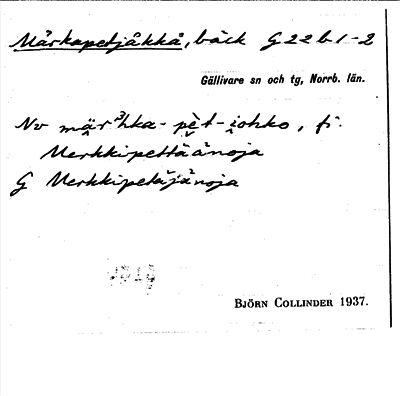 Mårkapetjåkkå, bäck G22b1-2
Gällivare sn och tg, Norrb. län.
Nv mär³hka-pèt-iohko, fi.
Merkkipettäänoja
G Merkkipetäjänoja
BJÖRN COLLINDER 1937.